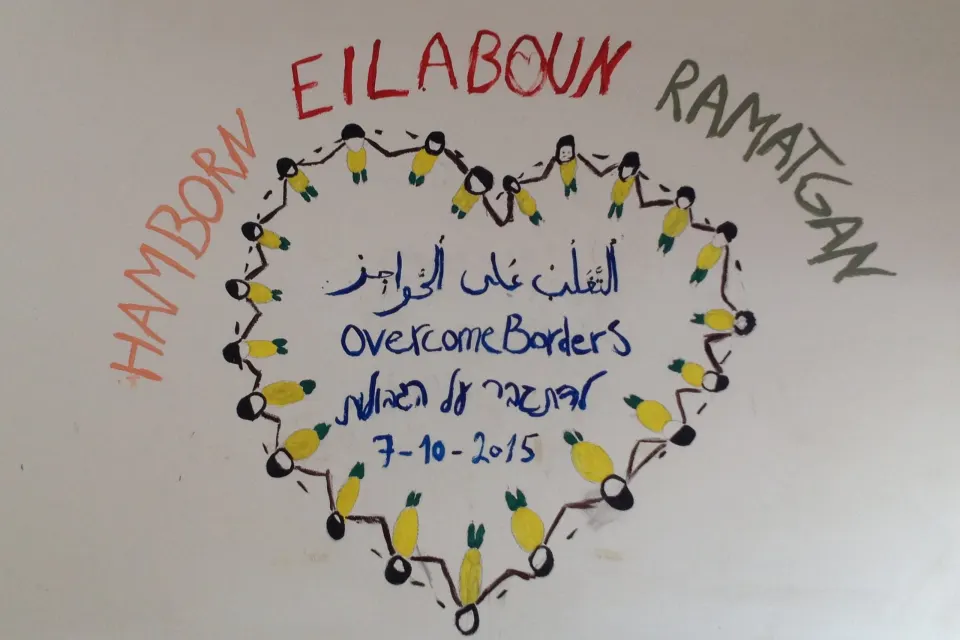 HAMBORN
EILABOUN
RAMATGAN
التَّغَلُب عَلى الحَّواجِز
OvercomeBorders
להתגבר על הגבולות
7-10-2015